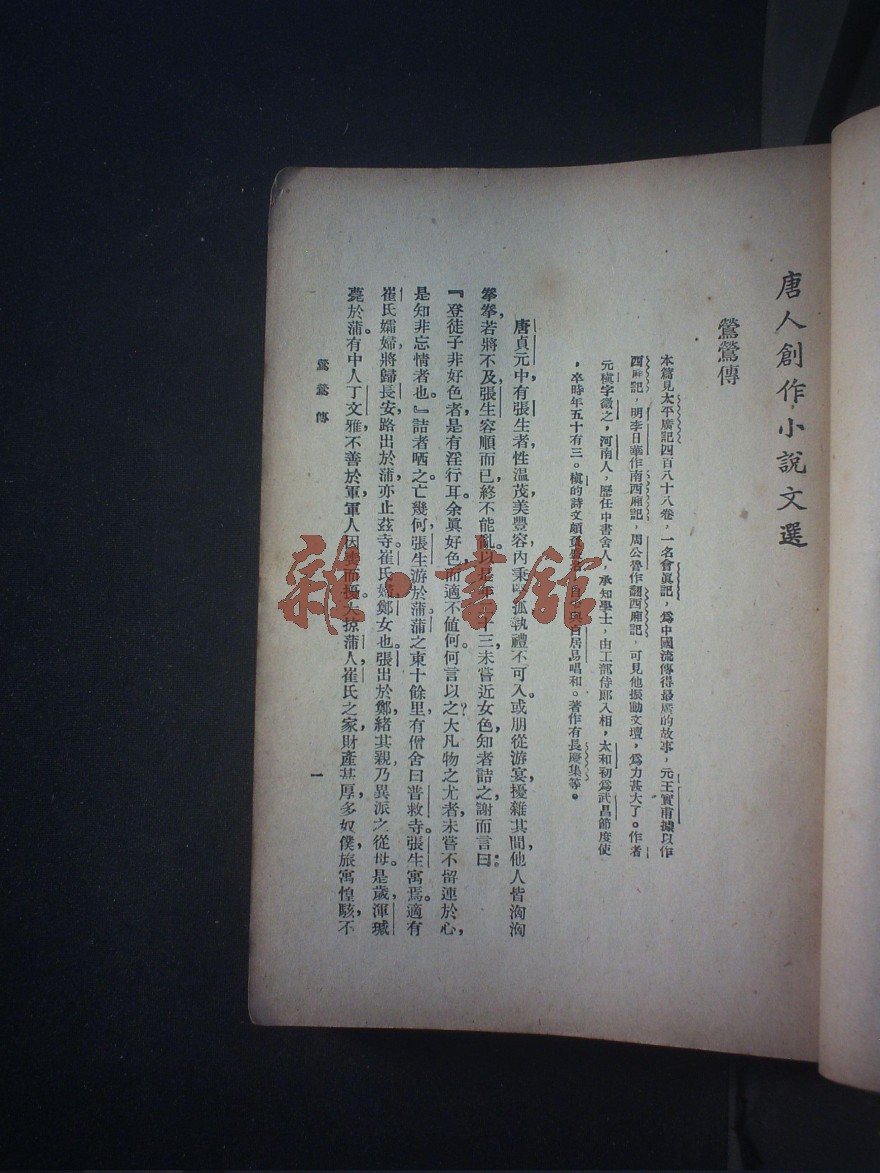 唐人創作小說文選
鶯鶯傳
本篇見太平廣記四百八十八卷，一名會眞記，爲中國流傳得最廣的故事，元王實甫據以作
西廂記，明李日華作南西廂記，周公魯作翻西廂記，可見他振動文壇，爲力甚大了。作者
元稹字微之，河南人，歷任中書舍人，承知學士，由工部侍郎入相，太和初爲武昌節度使
，卒時年五十有三。稹的詩文 居易唱和。著作有長慶集等。
唐貞元中，有張生者，性温茂，美豐容，內秉 孤，執禮不可入。或朋從游宴，擾雜其間，他人皆洶洶
拳拳，若將不及，張生容順而已，終不能亂。以是年 十三，未嘗近女色。知者詰之，謝而言曰：
『登徒子非好色者，是有淫行耳。余眞好色，而適不値。何 何言以之？大凡物之尤者，未嘗不留連於心，
是知非忘情者也。』詰者哂之。亡幾何，張生游於蒲。蒲之東十餘里，有僧舍曰普救寺，張生寓焉。適有
崔氏孀婦，將歸長安，路出於蒲，亦止茲寺。崔氏婦，鄭女也。張出於鄭，緒其親，乃異派之從母。是歲，渾瑊
薨於蒲。有中人丁文雅，不善於軍，軍人因 而擾，大掠蒲人。崔氏之家，財產甚厚，多奴僕，旅寓惶駭，不
鶯鶯傳
一
雜·書館